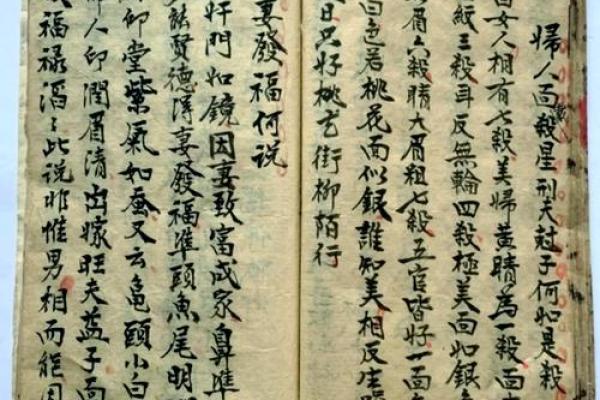 婦人面殺星刑夫尅子何如是殺
曰女人相有七殺美婦黃睛為一殺面
紙三殺耳反無輪四殺極美面如銀
眉六殺睛大眉粗七殺五官皆好一面
曰色若桃花面似銀誰知美相反生
日只好桃玄街柳陌行
妻發福何説
奸門如鏡因妻致富成家鼻準
能賢德淂妻發福準頭魚尾明
仰堂紫氣如蚕又云亀頭小白
人印潤眉清出嫁旺夫益子面
福禄滔〻此説非惟男相而能